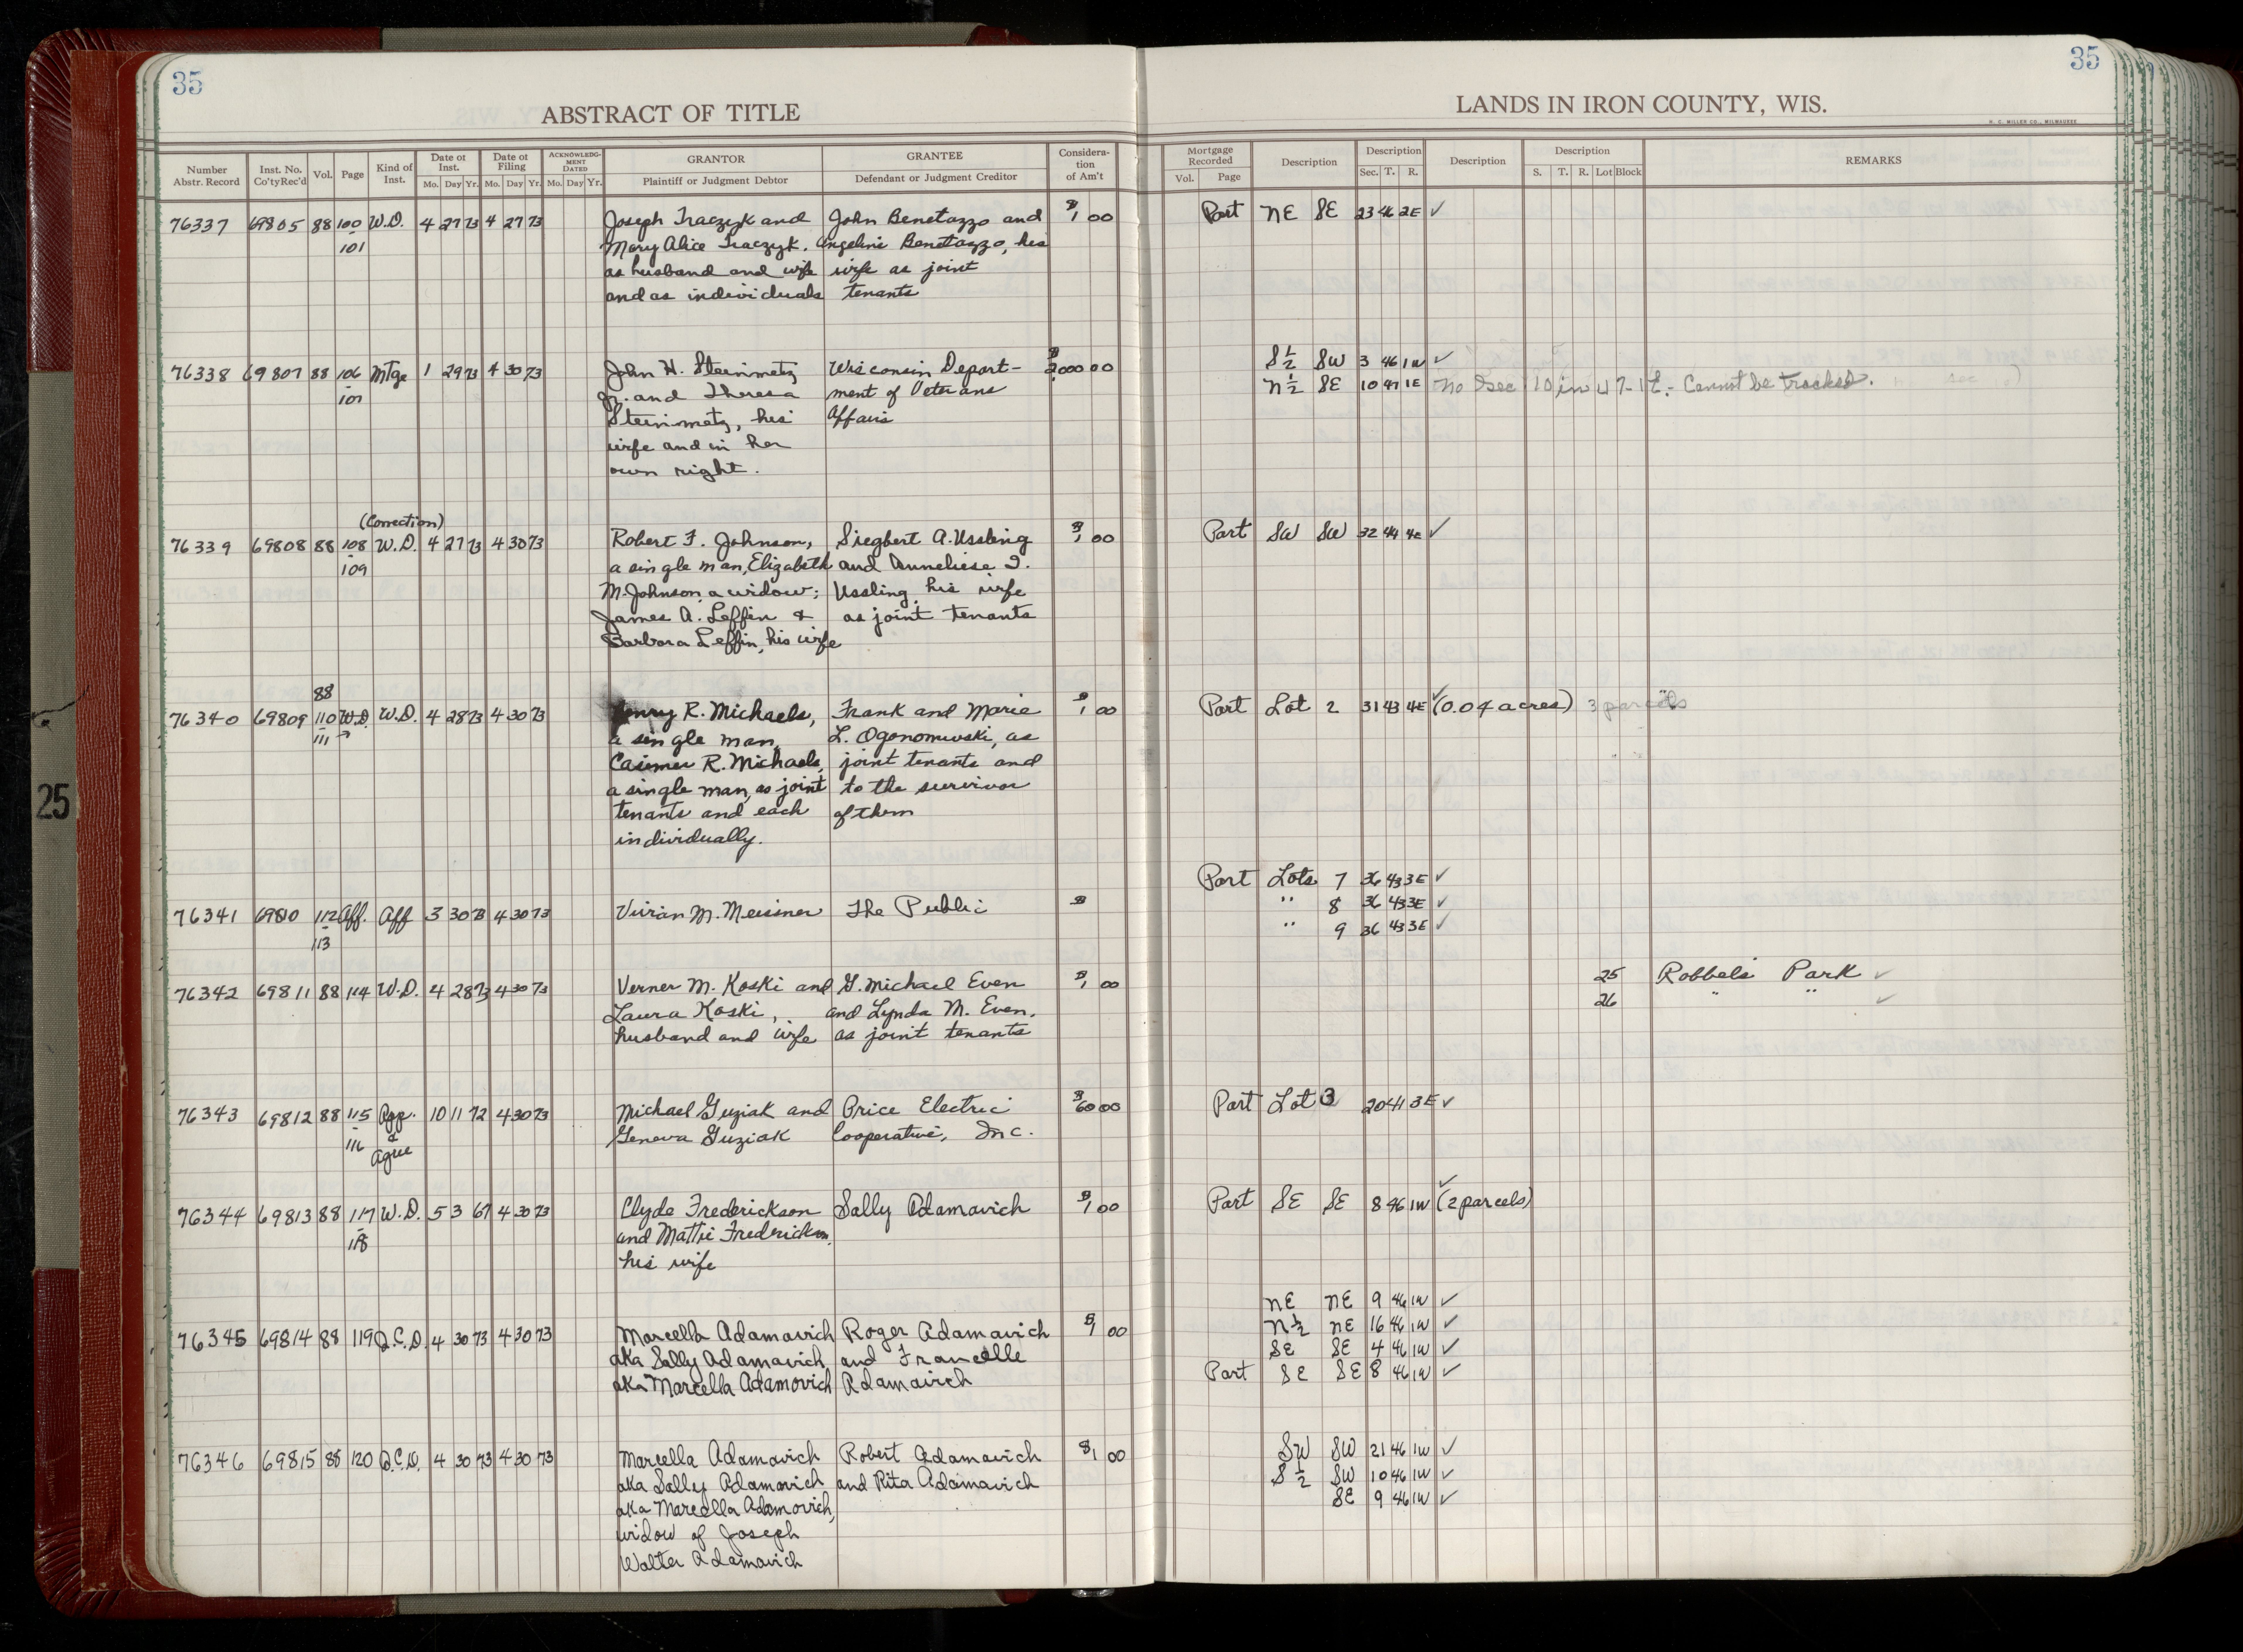 35
35
ABSTRACT OF TITLE
LANDS IN IRON COUNTY, WIS.
H. C. MILLER CO., MILWAUKEE
Number Abstr. Record
Inst. No. Co'ty Rec'd
Vol.
Page
Kind of Inst.
Date of Inst.
Mo. Day Yr.
Date of Filing
Mo. Day Yr.
ACKNOWLEDGMENT DATED
Mo. Day Yr.
GRANTOR
Plaintiff or Judgment Debtor
GRANTEE
Defendant or Judgment Creditor
Consideration of Am't
Mortgage Recorded
Vol. Page
Description
Description
Sec. T. R.
Description
Description
S. T. R. Lot Block
REMARKS
76337 69805 88 100 W.D. 4 27 73 4 27 73 Joseph Traczyk and John Benetazzo and $1 00 Part NE SE 23 46 2E ✓
-101 Mary Alice Traczyk, Angeline Benetazzo, his
as husband and wife wife as joint
and as individuals tenants
S½ SW 3 46 1W ✓
76338 69807 88 106 Mtge 1 29 73 4 30 73 John H. Steinmetz Wisconsin Depart- 00 N½ SE 10 47 1E No Sec 10 in 47-1E - Cannot be tracked.
-107 Jr. and Theresa ment of Veterans
Steinmetz, his Affairs
wife and in her
own right.
(Correction)
76339 69808 88 108 W.D. 4 27 73 4 30 73 Robert F. Johnson, Siegbert A. Ussling $1 00 Part SW SW 32 44 4E ✓
-109 a single man, Elizabeth and Anneliese I.
M. Johnson, a widow; Ussling his wife
James A. Leffin & as joint tenants
Barbara Leffin, his wife
88
76340 69809 110 W.D. W.D. 4 28 73 4 30 73 R. Michaels, Frank and Marie $1 00 Part Lot 2 31 43 4E ✓ (0.04 acres) 3 parcels
-111 a single man, L. Ogonomwski, as
Casimer R. Michaels, joint tenants and
a single man, as joint to the survivor
tenants and each of them
individually.
Part Lots 7 36 43 3E ✓
76341 69810 112 Aff. Aff 3 30 73 4 30 73 Vivian M. Meisner The Public $ " 8 36 43 3E ✓
-113 " 9 36 43 3E ✓
76342 69811 88 114 W.D. 4 28 73 4 30 73 Verner M. Koski and G. Michael Even $1 00 25 Robbels Park ✓
Laura Koski, and Lynda M. Even, 26 " " ✓
husband and wife as joint tenants
76343 69812 88 115 4 30 73 10 11 72 Michael Guziak and Price Electric $60 00 Part Lot 3 20 41 3E ✓
-116 & Agree Geneva Guziak Cooperative, Inc.
76344 69813 88 117 W.D. 5 3 67 4 30 73 Clyde Frederickson Sally Adamavich $1 00 Part SE SE 8 46 1W ✓ (2 parcels)
-118 and Mattie Frederickson,
his wife
NE NE 9 46 1W ✓
76345 69814 88 119 Q.C.D. 4 30 73 4 30 73 Marcella Adamavich Roger Adamavich $1 00 N½ NE 16 46 1W ✓
aka Sally Adamavich and Francelle SE SE 4 46 1W ✓
aka Marcella Adamovich Adamavich Part SE SE 8 46 1W ✓
76346 69815 88 120 Q.C.D. 4 30 73 4 30 73 Marcella Adamavich Robert Adamavich $1 00 SW SW 21 46 1W ✓
aka Sally Adamovich and Rita Adamavich S½ SW 10 46 1W ✓
aka Marcella Adamovich, SE 9 46 1W ✓
widow of Joseph
Walter Adamavich
25